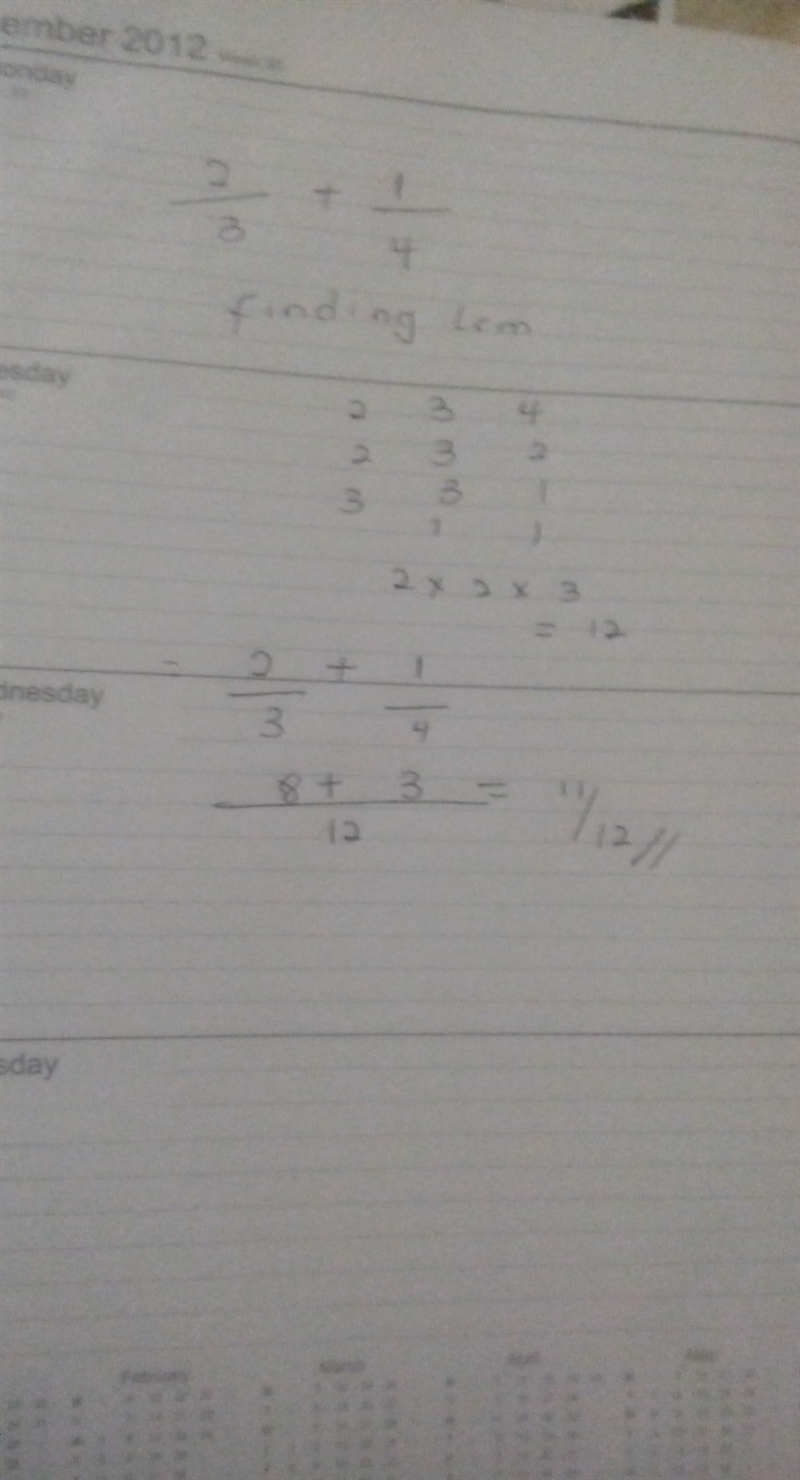 ember 2012
onday
2/3 + 1/4
finding Lcm
esday
2 3 4
2 3 2
3 3 1
1 1
2 × 2 × 3
= 12
= 2/3 + 1/4
dnesday
8 + 3 / 12 = 11/12//
sday
February March April May